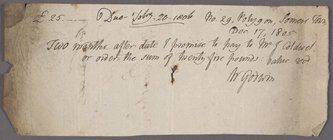 £ 25 — Due Feby. 20. 1806 No. 29, Polygon, Somers Town
Dec 17, 1805
Two months after date I promise to pay to Mr J Caldwel
or order the sum of twenty five pounds value recd
W Godwin